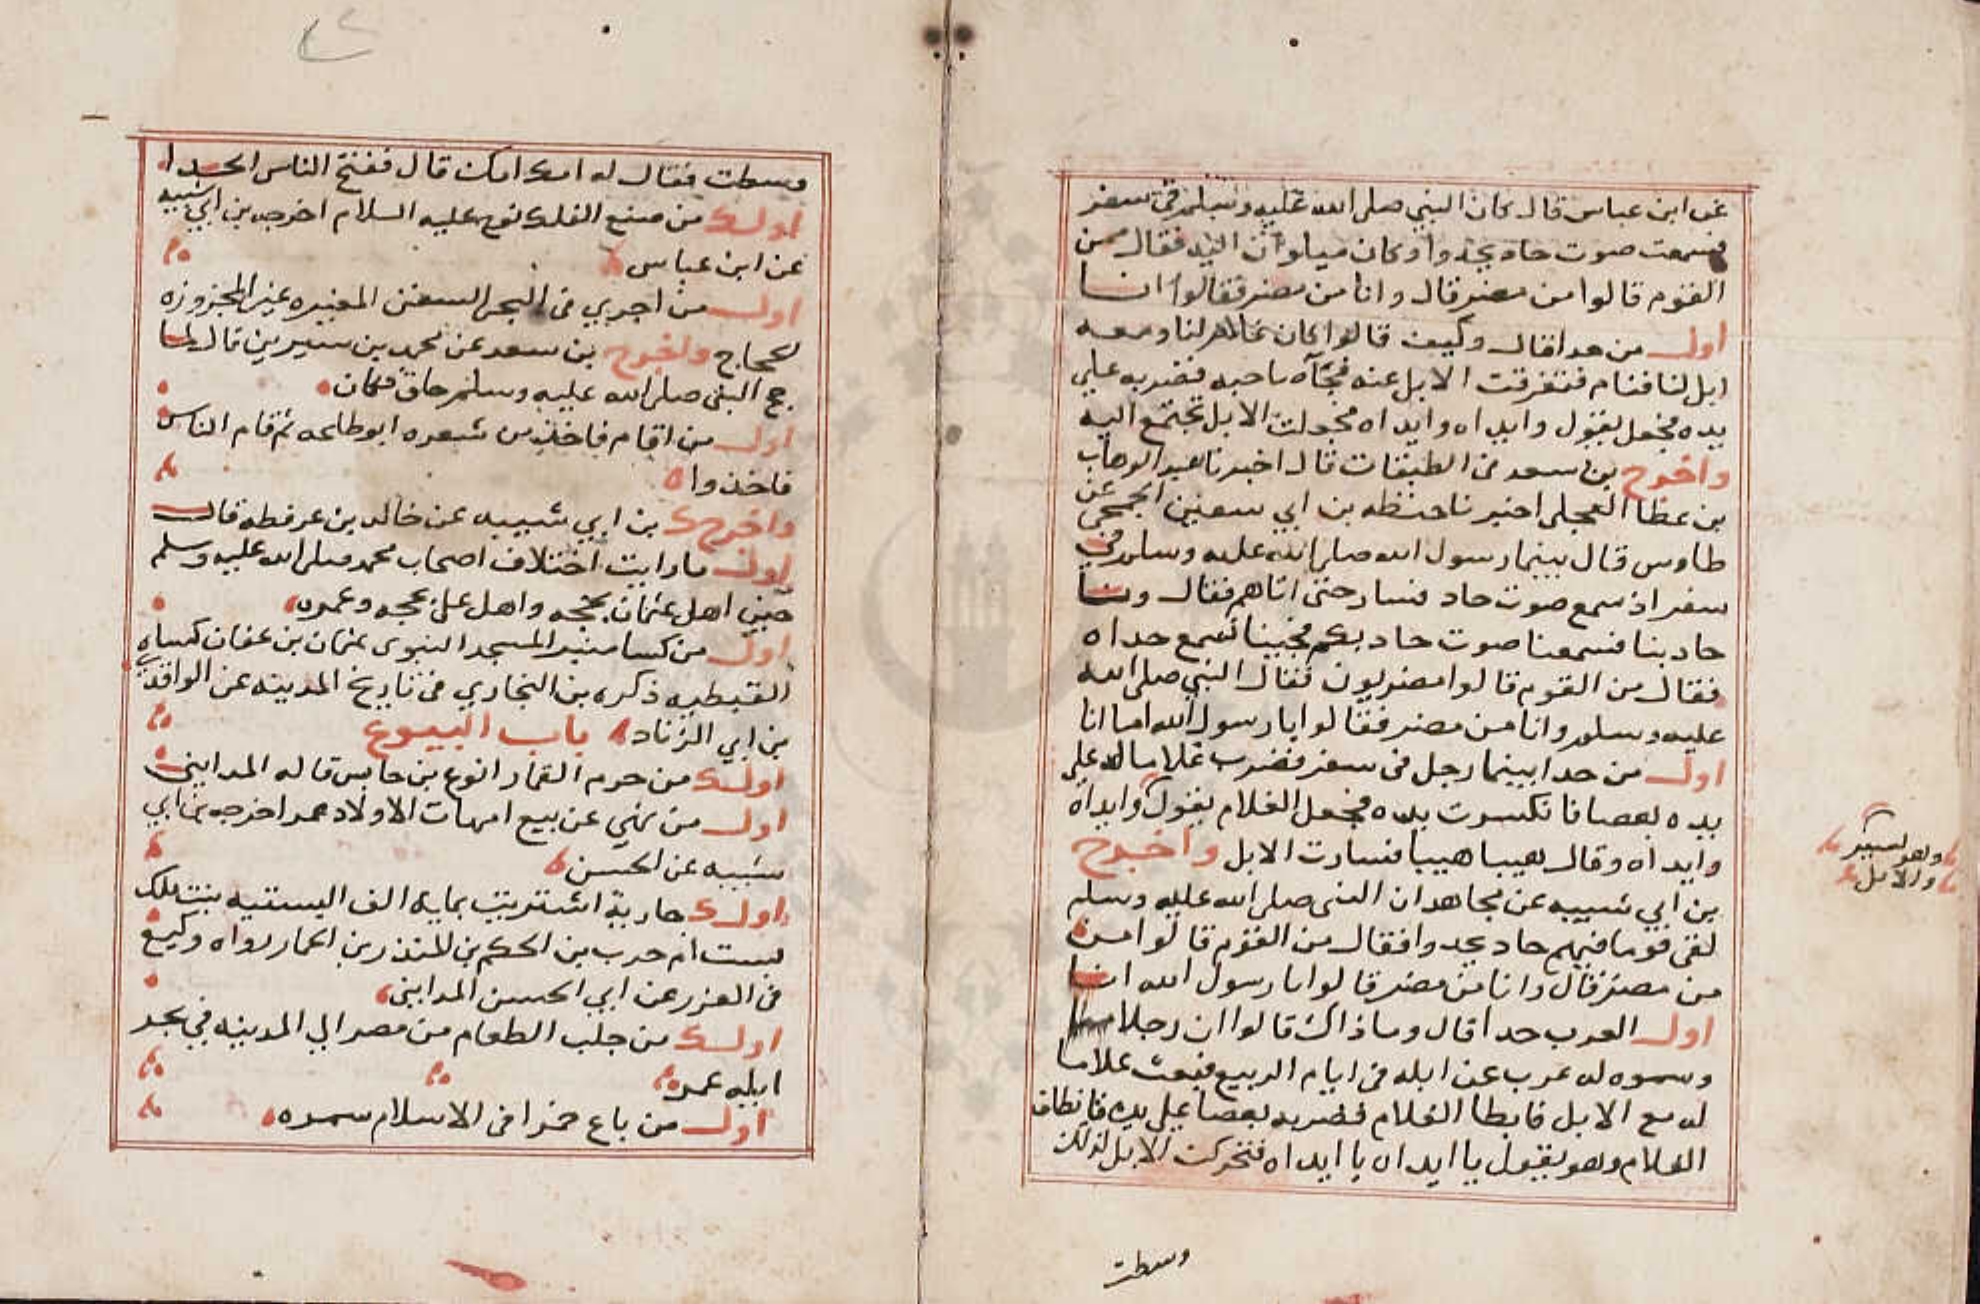 عن ابن عباس قال كان النبي صلى الله عليه وسلم في سفر
فسمعت صوت حاد يحدوا وكان ميلوا ان اليه فقال ممن
القوم قالوا من مضر قال وانا من مضر فقالوا انا
اول من حدا قال وكيف قالوا كان لنا ومعه
ابل لنا فنام فتفرقت الابل عنه فجآه صاحبه فضربه علي
يده فجعل يقول وايداه وايداه فجعلت الابل تجتمع اليه
واخرج بن سعد في الطبقات قال اخبرنا عبد الوهاب
بن عطا العجلي اخبرنا حنظله بن ابي سفين الجمحي عن
طاوس قال بينما رسول الله صلى الله عليه وسلم في
سفر اذ سمع صوت حاد فسار حتى اتاهم فقال ونسا
حاد بنا فسمعنا صوت حاد بكم فجينا نسمع حداه
فقال من القوم قالوا مضريون فقال النبي صلى الله
عليه وسلم وانا من مضر فقالوا يا رسول الله اما انا
اول من حدا بينما رجل في سفر فضرب غلاما له علي
يده بعصا فانكسرت يده فجعل الغلام يقول وايداه
وايداه وقال هيبا هيبا فسارت الابل واخرج
بن ابي شيبه عن مجاهد ان النبي صلى الله عليه وسلم
لقي قوما فيهم حاد يحدوا فقال من القوم قالوا من
من مضر قال وانا من مضر قالوا يا رسول الله انا
اول العرب حدا قال وما ذاك قالوا ان رجلا منا
وسموه له عرب عن ابله في ايام الربيع فبعث غلاما
له مع الابل فابطا الغلام فضربه بعصا علي يده فانطلق
الغلام وهو يقول يا ايداه يا ايداه فتحركت الابل لذلك
وهو يسير
والابل
وسطت
وسطت فقال له امك امك قال ففتح الناس الحدا
اول من صنع الفلك نوح عليه السلام اخرجه بن ابي شيبه
عن ابن عباس
اول من اجري في البحر السفن المقيره غير المخروزه
الحجاج واخرج بن سعد عن محمد بن سيرين قال لما
حج النبي صلى الله عليه وسلم حلق فكان
اول من قام فاخذ من شعره ابو طلحه ثم قام الناس
فاخذوا
واخرج بن ابي شيبه عن خالد بن عرفطه قال
اول ما رايت اختلاف اصحاب محمد صلى الله عليه وسلم
حين اهل عثمان بحجه واهل علي بحجه وعمره
اول من كسا منبر المسجد النبوي عثمان بن عفان كساه
القبطيه ذكره بن النجار في تاريخ المدينه عن الواقدي
بن ابي الزناد باب البيوع
اول من حرم القمار الاقرع بن حابس قاله المدايني
اول من نهي عن بيع امهات الاولاد عمر اخرجه بن ابي
شيبه عن الحسن
اول جارية اشتريت بمايه الف البستيه بنت ملك
بست ام حرب بن الحكم بن المنذر بن رواه وكيع
في الغرر عن ابي الحسن المدايني
اول من جلب الطعام من مصر الي المدينه في بحر
ايله عمر
اول من باع خمرا في الاسلام سمره